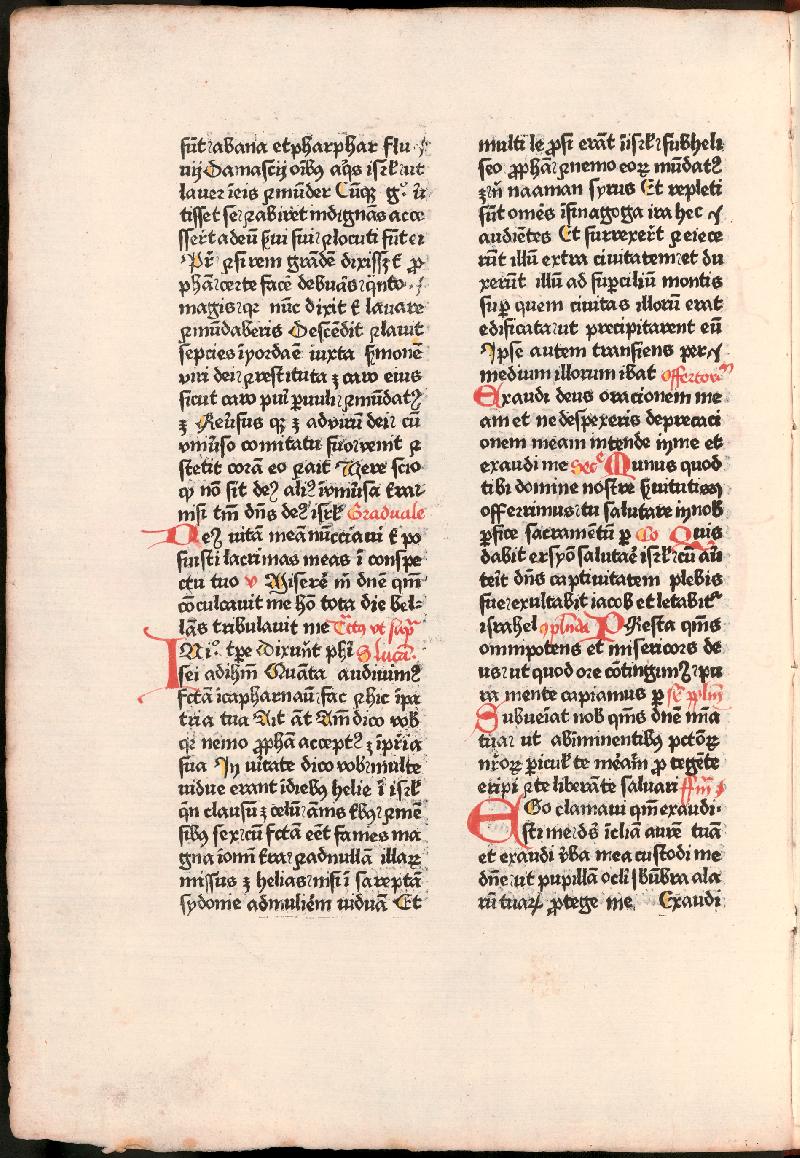 sūt abana et pharphar flu
uij Damascij oībꝰ aq̄s isrl̄ ut
lauer ī eis ⁊ mūder Cūqꝫ gͦ ū
tisset se ⁊ abiret indignās acce
ssert̄ ad eū ẜui sui ⁊ locuti sūt ei
Pr̄ ⁊ si rem grādē dixissꝫ t̄ ꝓ
phā certe facē debuās qͣnto
magis qꝛ nūc dixit t̄ lauare
⁊ mūdaberis Descēdit ⁊ lauit
sepcies ī yordaē iuxta ẜmonē
viri dei ⁊ restituta ꝫ caro eius
sicut caro pui̇ ꝑuuli ⁊ mūdatꝰ
ꝫ Reūsus qꝫ ꝫ ad virū dei cū
vniūso comitatu suo venit ⁊
stetit corā eo ⁊ ait Vere scio
ꝙ nō sit deꝰ aliꝰ ī vniūsa t̄ra
nisi tm̄ dn̄s deꝰ isrl̄ Graduale
Deꝰ uitā meā nūcciaui t̄ po
suisti lacrimas meas ī conspe
ctu tuo v Miserē m̄ dn̄e qm̄
cōculcauit me hō tota die bel
lās tribulauit me Tctꝰ vt supͣ
IN ıͦ tp̄e Dixūnt phı̄ S lucā
sei ad ihm̄ Quāta audiuimꝰ
fctā ī capharnaū fac ⁊ hic ī pa
tria tua Ait āt Am̄ dico vob
qꝛ nemo ꝓphā acceptꝰ ꝫ ī pr̄ia
sua In uītate dico vob multe
vidue erant ī diebꝰ helie ī isrl̄
qn̄ clausū ꝫ celū āms tbꝰ ⁊ mē
sibꝰ sex cū fctā eēt fames ma
gna ī omī t̄ra ⁊ ad nullā illaꝝ
missus ꝫ helias nisi ī sareptā
sydonie ad muliēm uiduā Et
multi leꝓsi erāt ī isrl̄ sub heli
seo ꝓphā ⁊ nemo eoꝝ mūdatꝰ
ꝫ n̄ naaman syrus Et repleti
sūt omēs ī sinagoga ira hec
audiētes Et surrexer̄t ⁊ eiece
rūt illū extra ciuitatem et du
xerūt illū ad suꝑciliū montis
suꝑ quem ciuitas illorū erat
edificata ut precipitarent eū
Ipse autem transiens per
medium illorum ibat offertoriū
Exaudi deus oracionem me
am et ne despexeris deprecaci
onem meam intende in me et
exaudi me Secͤ Munus quod
tibi domine nostre ẜuitutis
offerrimus tu salutare in nob
ꝑfice sacramentū ꝑ Co Quis
dabit ex syō salutaē isrl̄ cū aūt
teit dn̄s captiuitatem plebis
sue exultabit iacob et letabitᷣ
israhel 9plnda PResta qm̄s
omnipotens et misericors de
us ut quod ore cōtingimꝰ pu
ra mente capiamus ꝑ sꝑ pplm̄
Subueiat nob qm̄s dn̄e mīa
tua ut ab īminentibꝰ pctōꝝ
nr̄oꝝ periculꝭ te meām ꝓtegēte
eripi ⁊ te liberāte saluari ff̄m
EGo clamaui qm̄ exaudi
sti me dꝰ īclīa aurē tuā
et exaudi v̄ba mea custodi me
dn̄e ut pupillā ocli sb ūbra ala
rū tuaꝝ ꝓtege me Exaudi